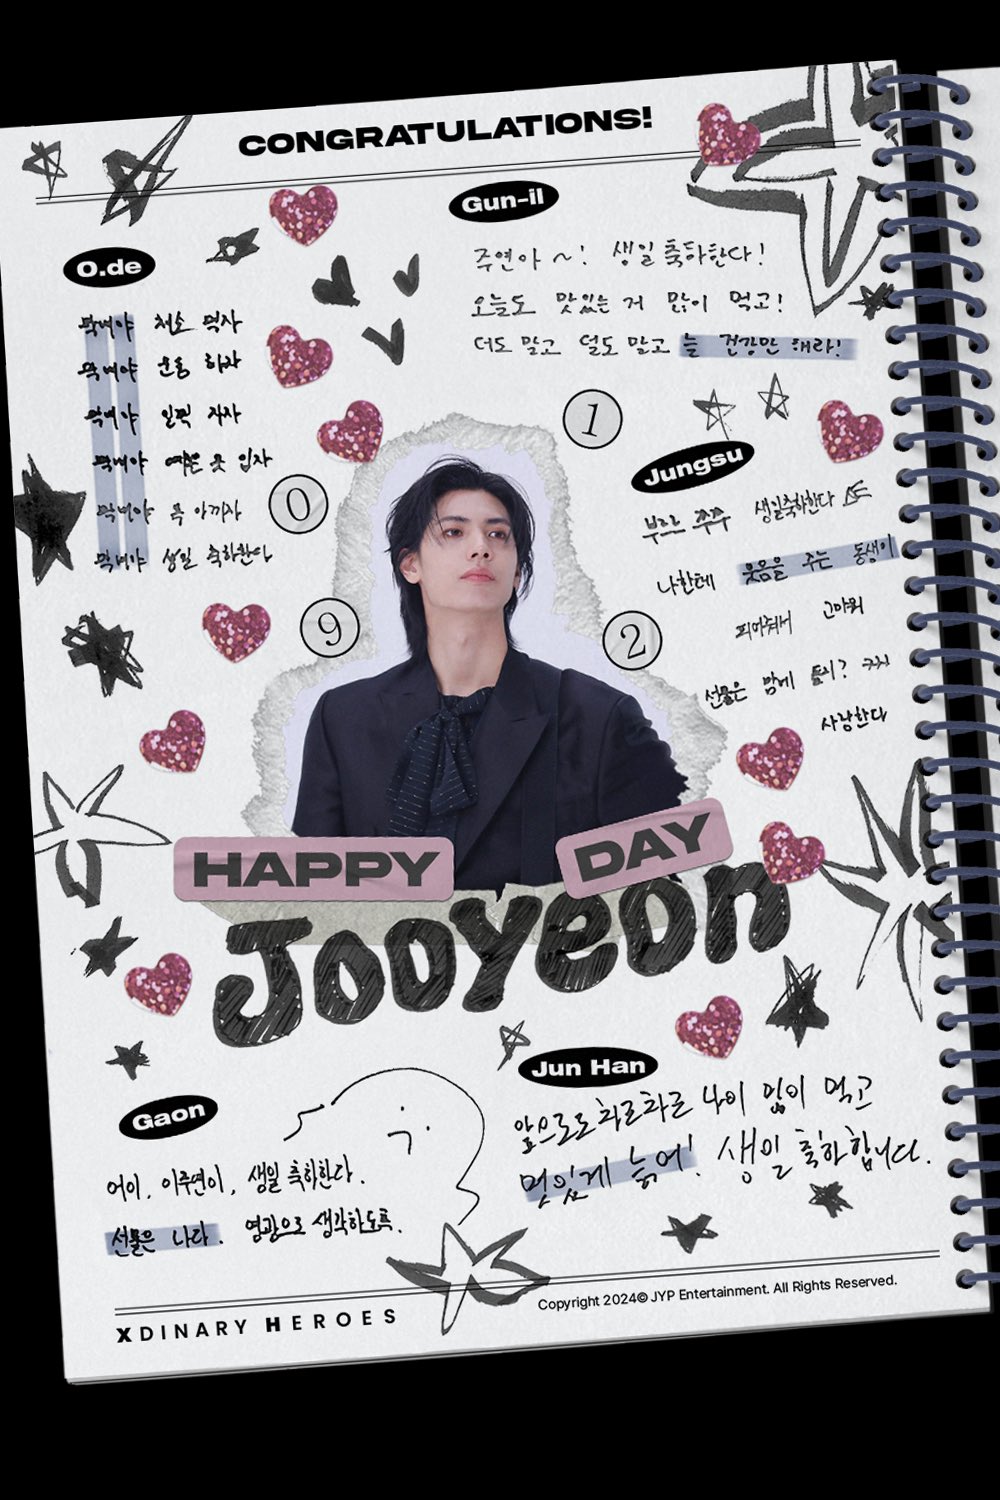 CONGRATULATIONS!
Gun-il
주연아 ~! 생일 축하한다!
오늘도 맛있는 거 많이 먹고!
더도 말고 덜도 말고 늘 건강만 해라!
O.de
막내야 채소 먹자
막내야 운동 하자
막내야 일찍 자자
막내야 예쁜 옷 입자
막내야 목 아끼자
막내야 생일 축하한다
1
0
9
2
Jungsu
부르 쭈쭈 생일축하한다
나한테 웃음을 주는 동생이
되어줘서 고마워
선물은 맘에 들지?
사랑한다
HAPPY DAY
Jooyeon
Gaon
어이, 이주연이, 생일 축하한다.
선물은 나다. 영광으로 생각하도록.
Jun Han
앞으로도 차근차근 나이 많이 먹고
멋있게 늙어! 생일 축하합니다.
XDINARY HEROES
Copyright 2024© JYP Entertainment. All Rights Reserved.